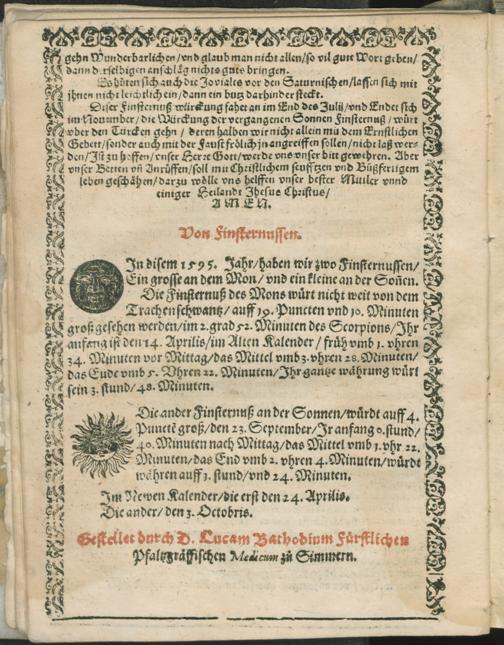 gehn Wunderbarlichen/ vnd glaub man nicht allen/ so vil gute Wort geben/
dann derselbigen anschläg nichts guts bringen.
Es hüten sich auch die Joviales vor den Saturnischen/ lassen sich mit
ihnen nicht leichtlich ein/ dann ein butz darhinder steckt.
Diser Finsternuß würckung fahet an im End des Julij/ vnd Endet sich
im Nouember/ die Würckung der vergangenen Sonnen Finsternuß/ würt
vber den Türcken gehn / deren halben wir nicht allein mit dem Ernstlichen
Gebett/ sonder auch mit der Faust frölich jn angreiffen sollen/ nicht laß wer-
den/ Ist zu hoffen/ vnser Herre Gott/ werde vns vnser bitt gewehren. Aber
vnser Betten vñ Anrüffen/ soll mit Christlichem seufftzen vnd Büßfertigem
leben geschähen/ darzu wölle vns helffen vnser bester Mittler vnnd
einiger Heilandt Jhesus Christus/
A M E N.
Von Finsternussen.
In disem 1595. Jahr/ haben wir zwo Finsternussen/
Ein grosse an dem Mon/ vnd ein kleine an der Soñen.
Die Finsternuß des Mons würt nicht weit von dem
Trachenschwantz/ auff 19. Puncten vnd 10. Minuten
groß gesehen werden/ im 2. grad 52. Minuten des Scorpions/ Ihr
anfang ist den 14. Aprilis/ im Alten Kalender / früh vmb 1. vhren
34. Minuten vor Mittag/ das Mittel vmb 3. vhren 28. Minuten/
das Ende vmb 5. Vhren 22. Minuten/ Ihr gantze währung würt
sein 3. stund/ 48. Minuten.
Die ander Finsternuß an der Sonnen/ würdt auff 4.
Punctē groß/ den 23. September/ Jr anfang 0. stund/
40. Minuten nach Mittag/ das Mittel vmb 1. vhr 22.
Minuten/ das End vmb 2. vhren 4. Minuten/ würdt
währen auff 1. stund/ vnd 24. Minuten.
Im Newen Kalender/ die erst den 24. Aprilis.
Die ander/ den 3. Octobris.
Gestellet durch D. Lucam Bathodium Fürstlichen
Pfaltzgräffischen Medicum zů Simmern.